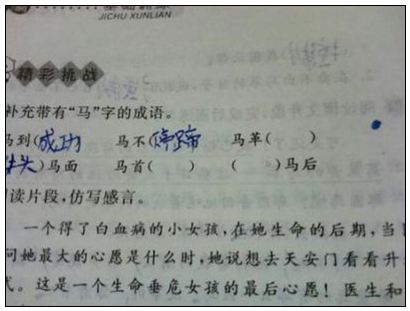 JICHU XUNLIAN
精彩挑战
补充带有“马”字的成语。
马到(成功) 马不(停蹄) 马革( )
)马面 马首( ) ( )马后
读片段，仿写感言。
一个得了白血病的小女孩，在她生命的后期，当
问她最大的心愿是什么时，她说想去天安门看看升
式。这是一个生命垂危女孩的最后心愿！医生和